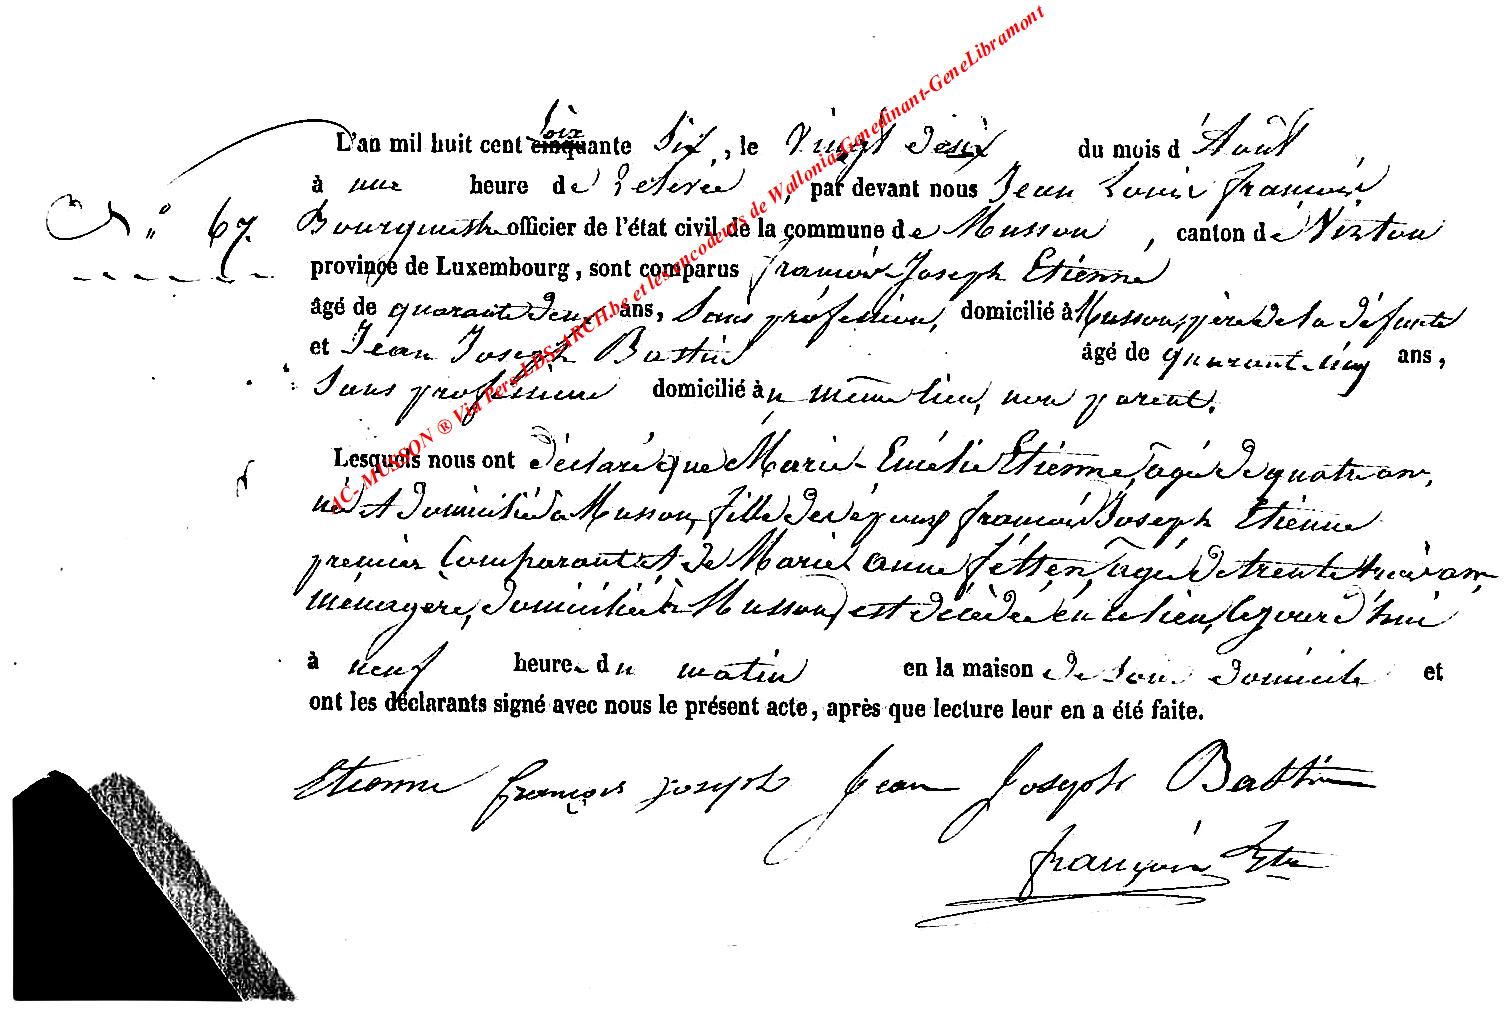 L'an mil huit cent soixante six, le vingt deux du mois d'Août
à une heure de relevée, par devant nous Jean Louis François
N° 67. Bourguesth officier de l'état civil de la commune de Musson, canton de Virton
province de Luxembourg, sont comparus françois Joseph Etienne
âgé de quarante deux ans, Sans profession, domicilié à Musson, père de la défunte
et Jean Joseph Bastin âgé de quarante cinq ans,
Sans profession domicilié au même lieu, non parent.
Lesquels nous ont déclaré que Marie-Emélie Etienne, agée de quatre ans,
née et domiciliée à Musson, fille des époux françois Joseph Etienne
premier Comparant et de Marie anne fetten, agée de trente trois ans
ménagère, domiciliée à Musson, est décédée en ce lieu, ce jour d'hui
à neuf heures du matin en la maison de son domicile et
ont les déclarants signé avec nous le présent acte, après que lecture leur en a été faite.
Etienne françois joseph Jean Joseph Bastin
françois
AC-MUSSON ® Via Pers LDS-ARCH.be et les encodeurs de Wallonia-Genedinant-GeneLibramont